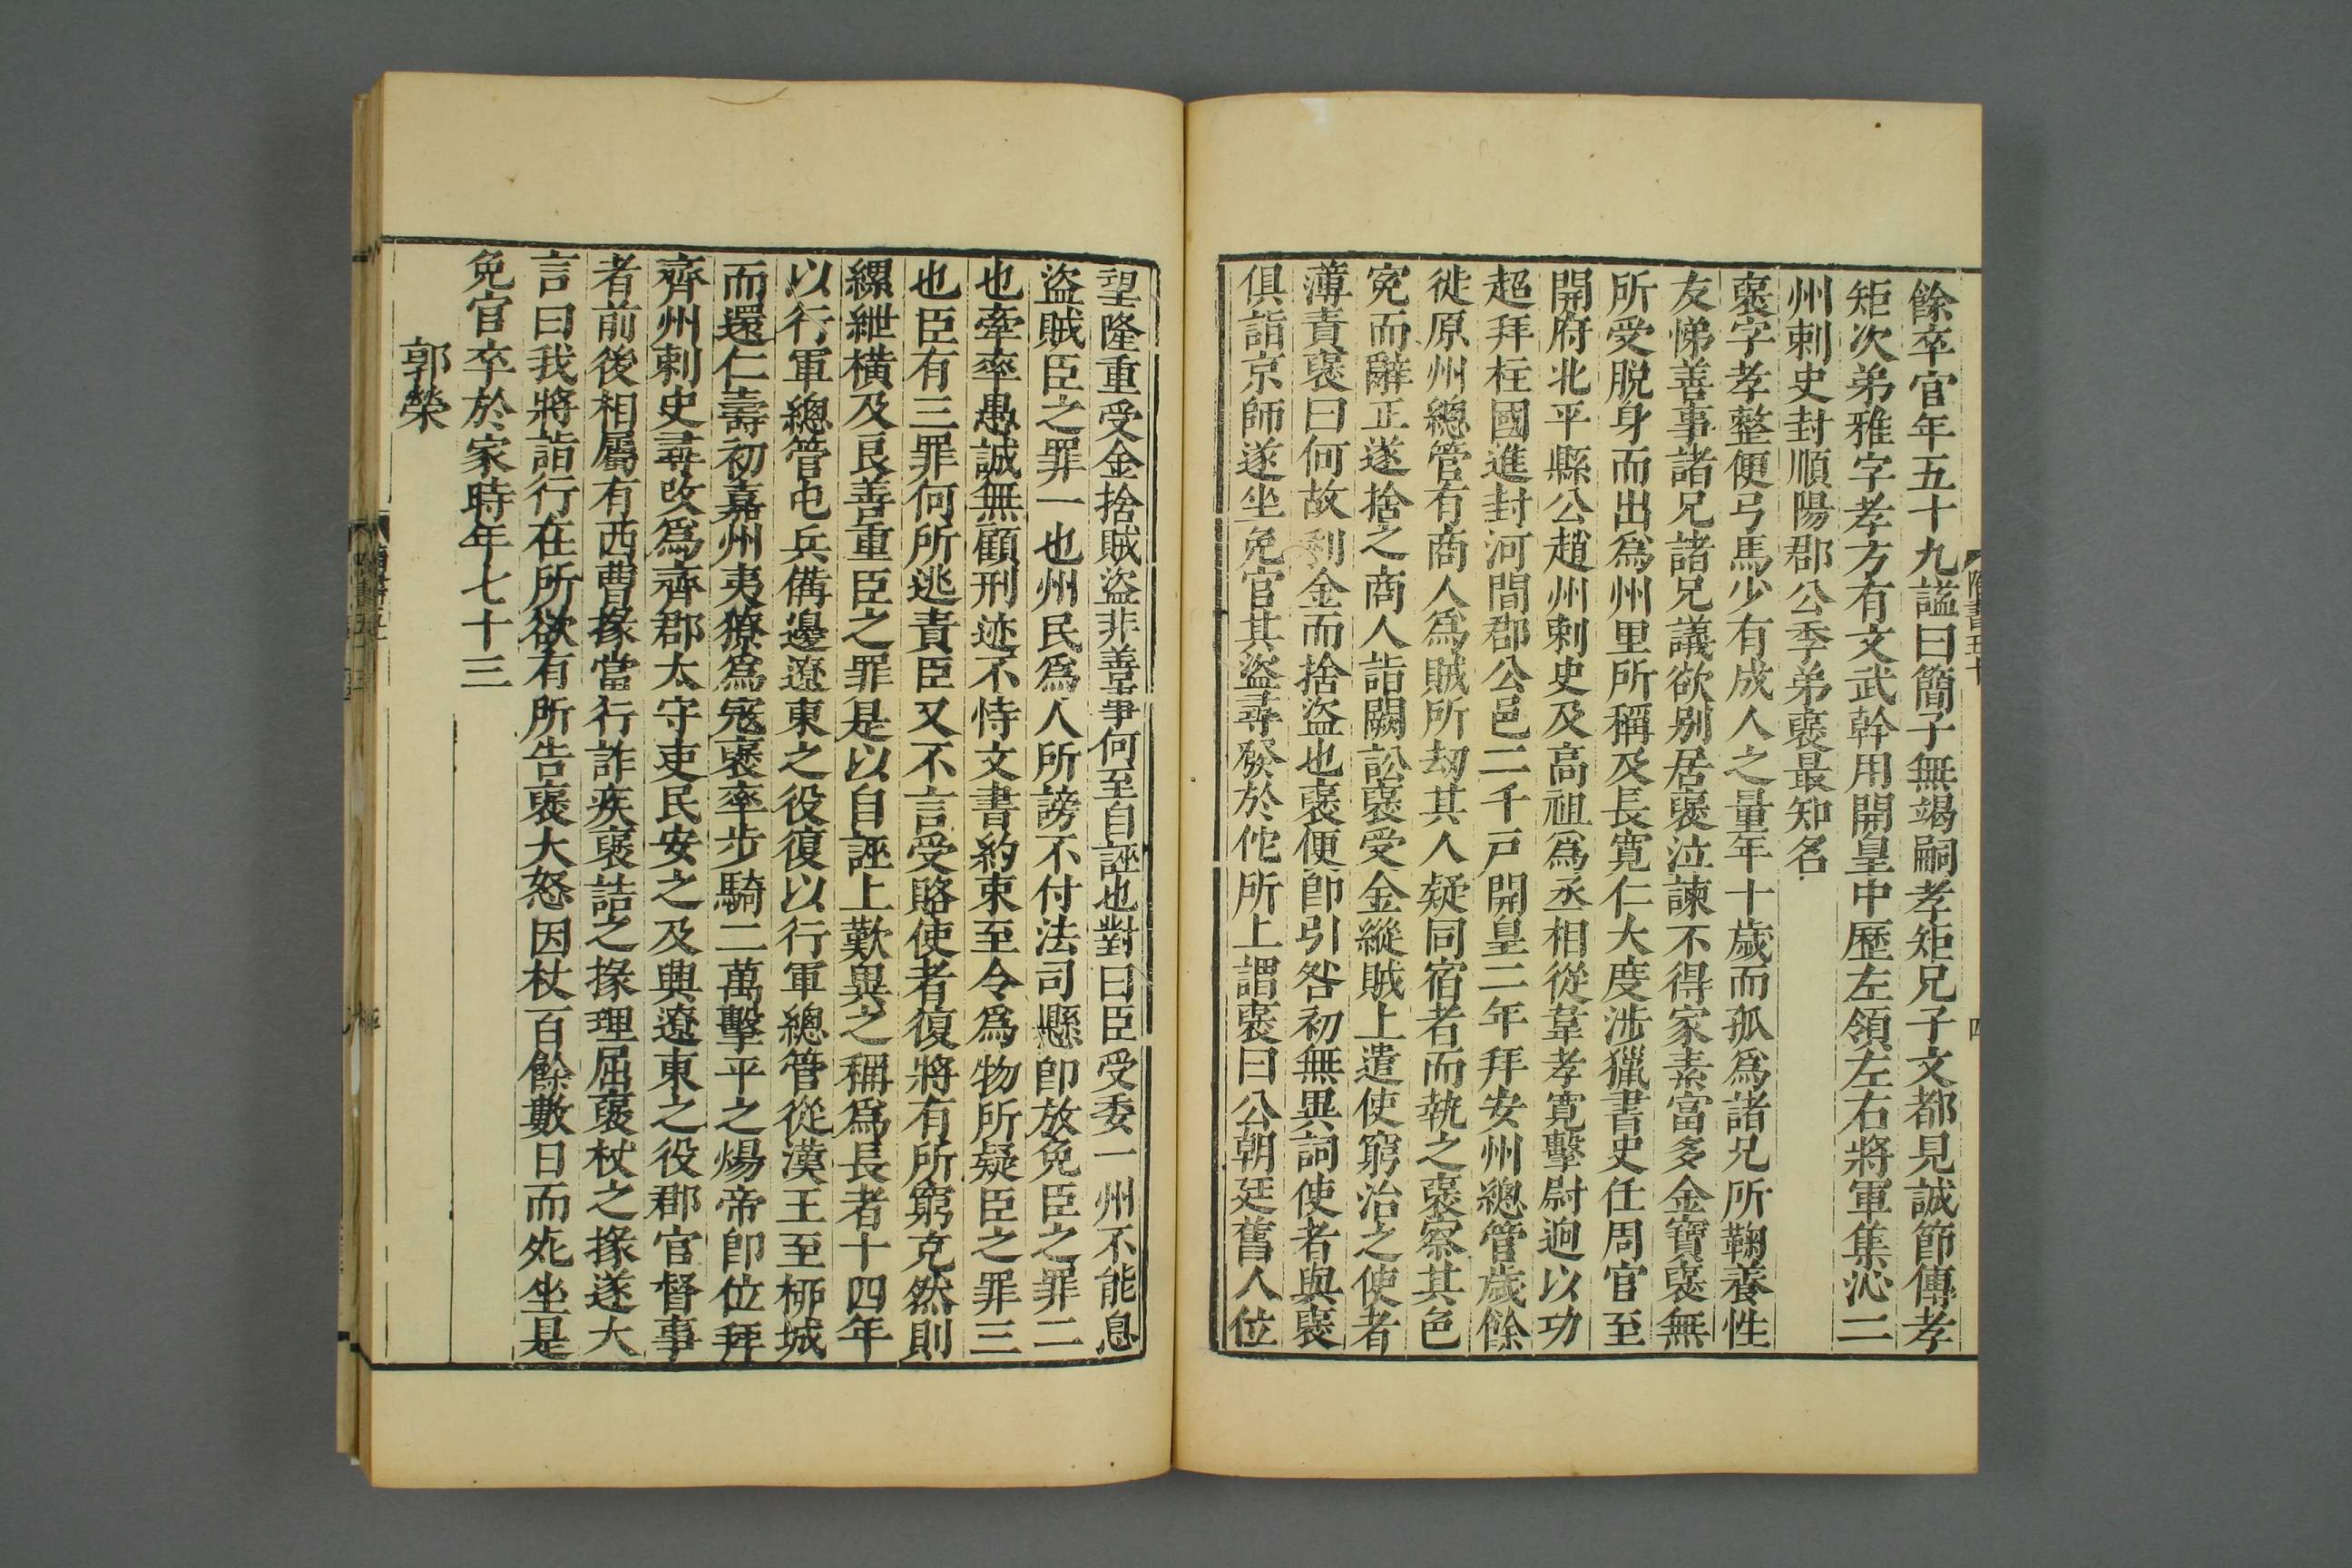 餘卒官年五十九謚曰簡子無竭嗣孝矩兄子文都見誠節傳孝
矩次弟雅字孝方有文武幹用開皇中歷左領左右將軍集沁二
州刺史封順陽郡公季弟裦最知名
裦字孝整便弓馬少有成人之量年十歲而孤爲諸兄所鞠養性
友悌善事諸兄諸兄議欲别居裦泣諫不得家素富多金寶裦無
所受脫身而出爲州里所稱及長寬仁大度涉獵書史任周官至
開府北平縣公趙州刺史及高祖爲丞相從韋孝寬擊尉逈以功
超拜柱國進封河間郡公邑二千戸開皇二年拜安州總管歲餘
徙原州總管有商人爲賊所劫其人疑同宿者而執之裦察其色
寃而辭正遂捨之商人詣闕訟裦受金縱賊上遣使窮治之使者
薄責裦曰何故利金而捨盜也裦便卽引咎初無異詞使者與裦
俱詣京師遂坐免官其盜尋發於佗所上謂裦曰公朝廷舊人位
望隆重受金捨賊盜非善事何至自誣也對曰臣受委一州不能息
盜賊臣之罪一也州民爲人所謗不付法司懸卽放免臣之罪二
也牽率愚誠無顧刑迹不恃文書約束至令爲物所疑臣之罪三
也臣有三罪何所逃責臣又不言受賂使者復將有所窮究然則
縲紲橫及良善重臣之罪是以自誣上歎異之稱爲長者十四年
以行軍總管屯兵備邊遼東之役復以行軍總管從漢王至柳城
而還仁壽初嘉州夷獠爲寇裦率步騎二萬擊平之煬帝卽位拜
齊州刺史尋攺爲齊郡太守吏民安之及興遼東之役郡官督事
者前後相屬有西曹掾當行詐疾裦詰之掾理屈裦杖之掾遂大
言曰我將詣行在所欲有所告裦大怒因杖百餘數日而死坐是
免官卒於家時年七十三
郭榮